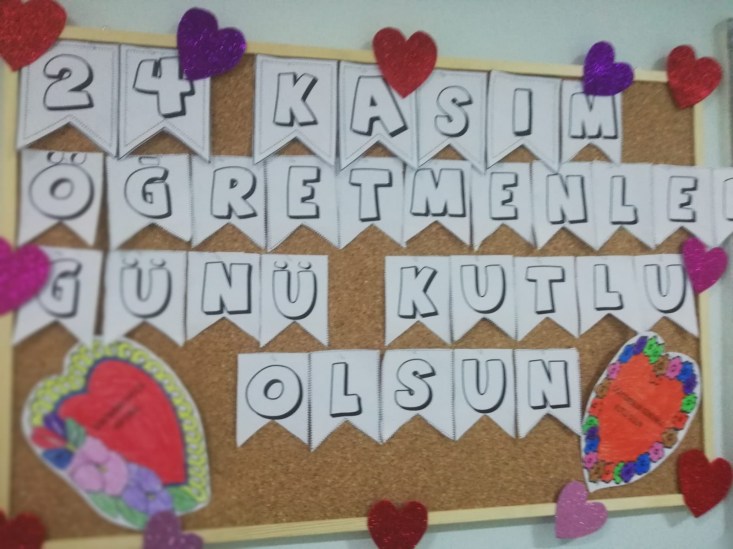 24 KASIM
ÖĞRETMENLE
GÜNÜ KUTLU
OLSUN